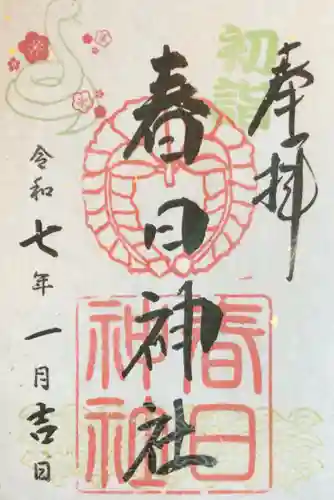 奉拝
初詣
春日神社
春日
神社
令和七年一月吉日